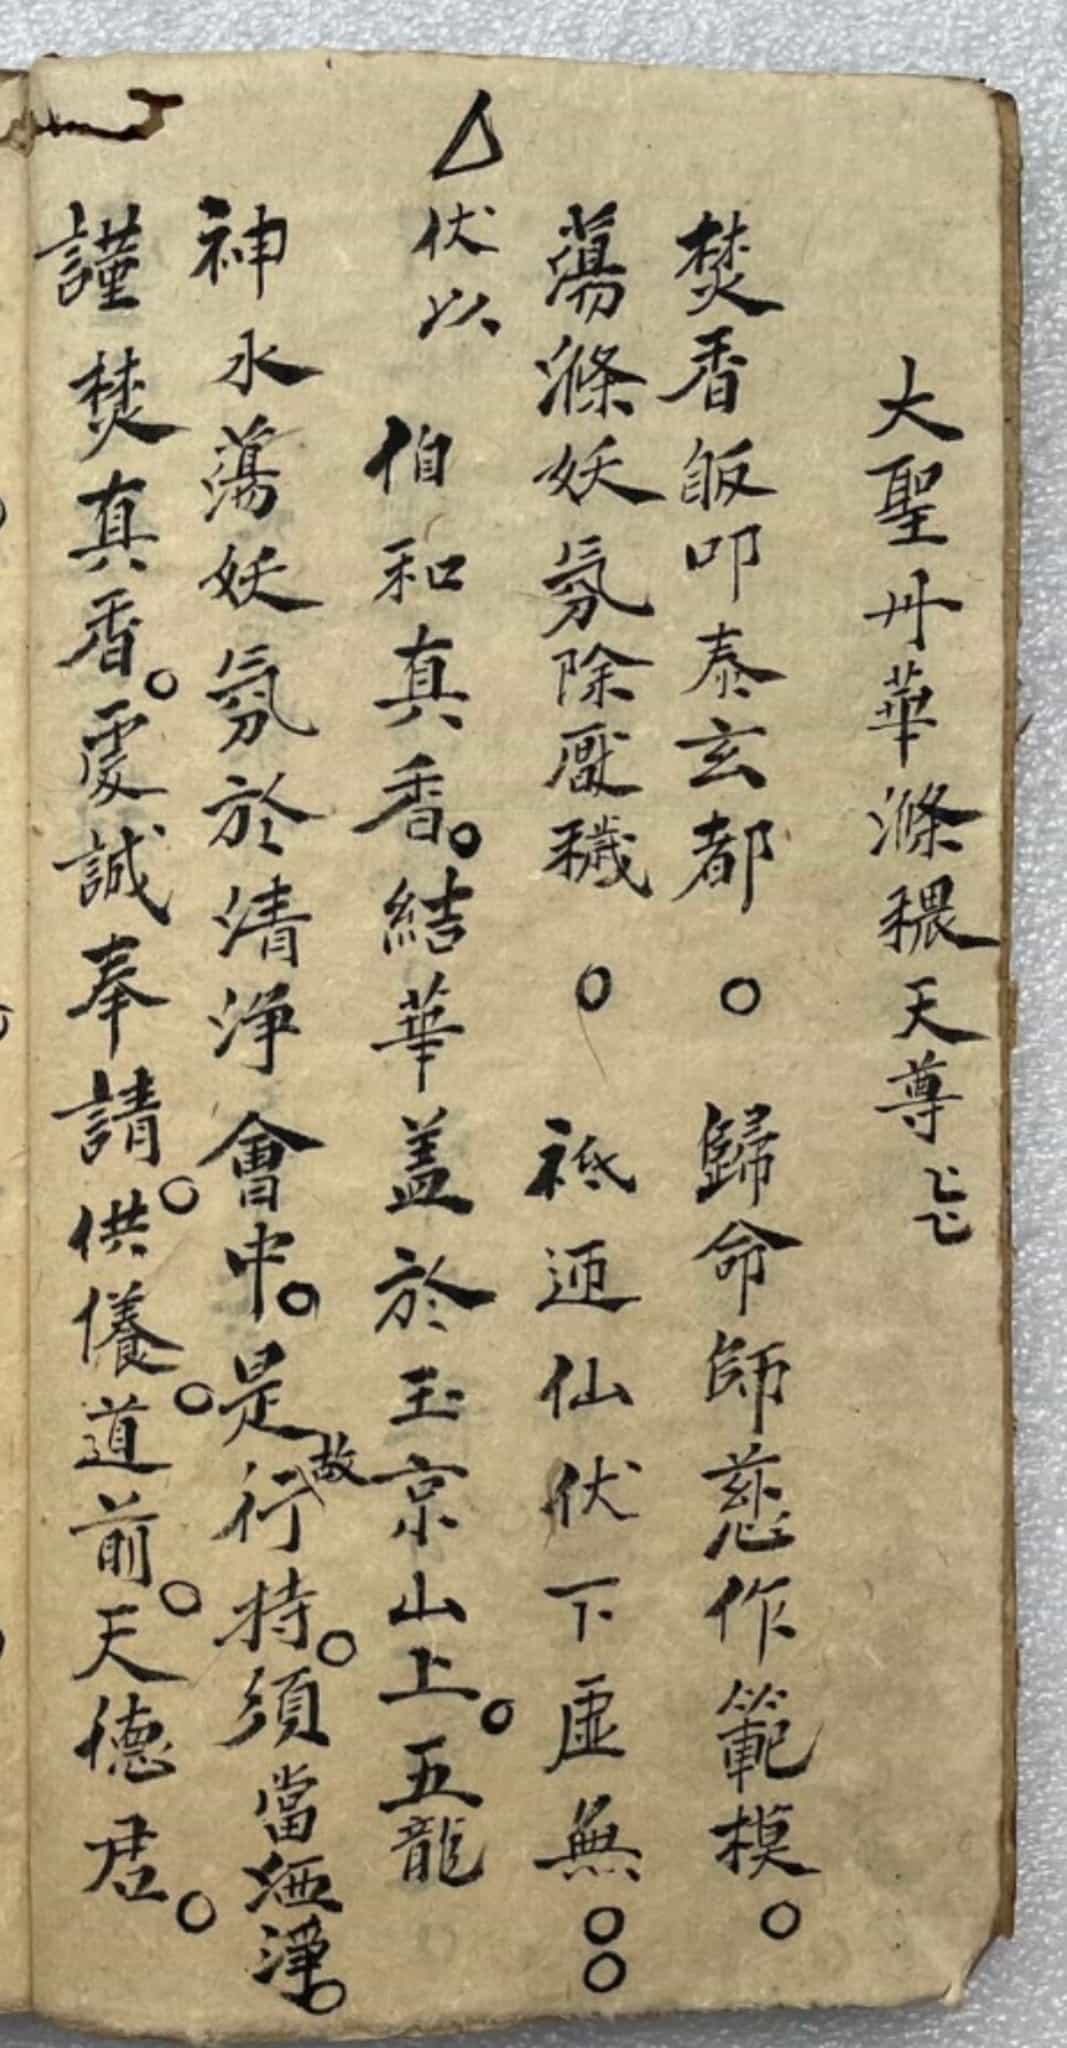 大聖丹華滌穢天尊
焚香皈叩泰玄都。歸命師慈作範模。
蕩滌妖氛除厭穢。祗迎仙伏下虛無。。
△伏以 伯和真香。結華盖於玉京山上。五龍
神水蕩妖氛於清淨會中。是故行持。須當洒淨。
謹焚真香。虔誠奉請。供儀。道前。天德君。